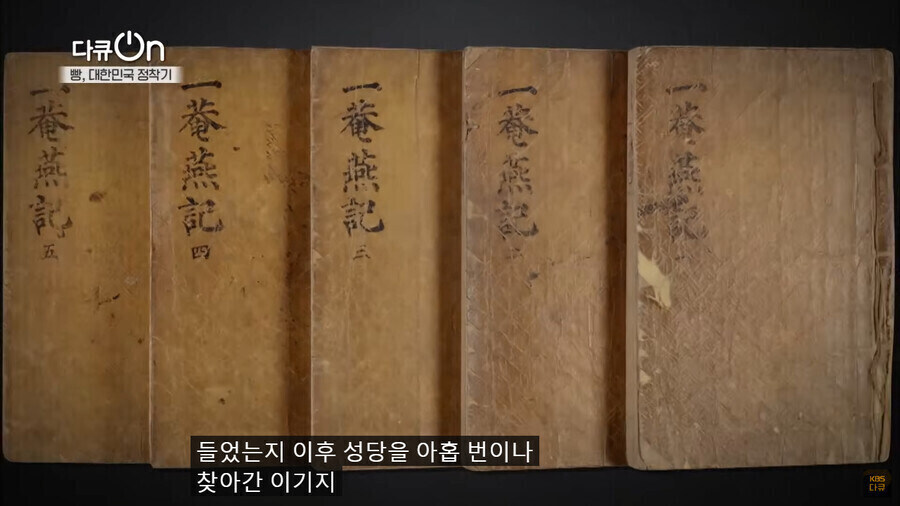 다큐On
빵, 대한민국 정착기
一菴燕記 五
一菴燕記 四
一菴燕記 三
一菴燕記 二
一菴燕記 一
들었는지 이후 성당을 아홉 번이나
찾아간 이기지
KBS
다큐